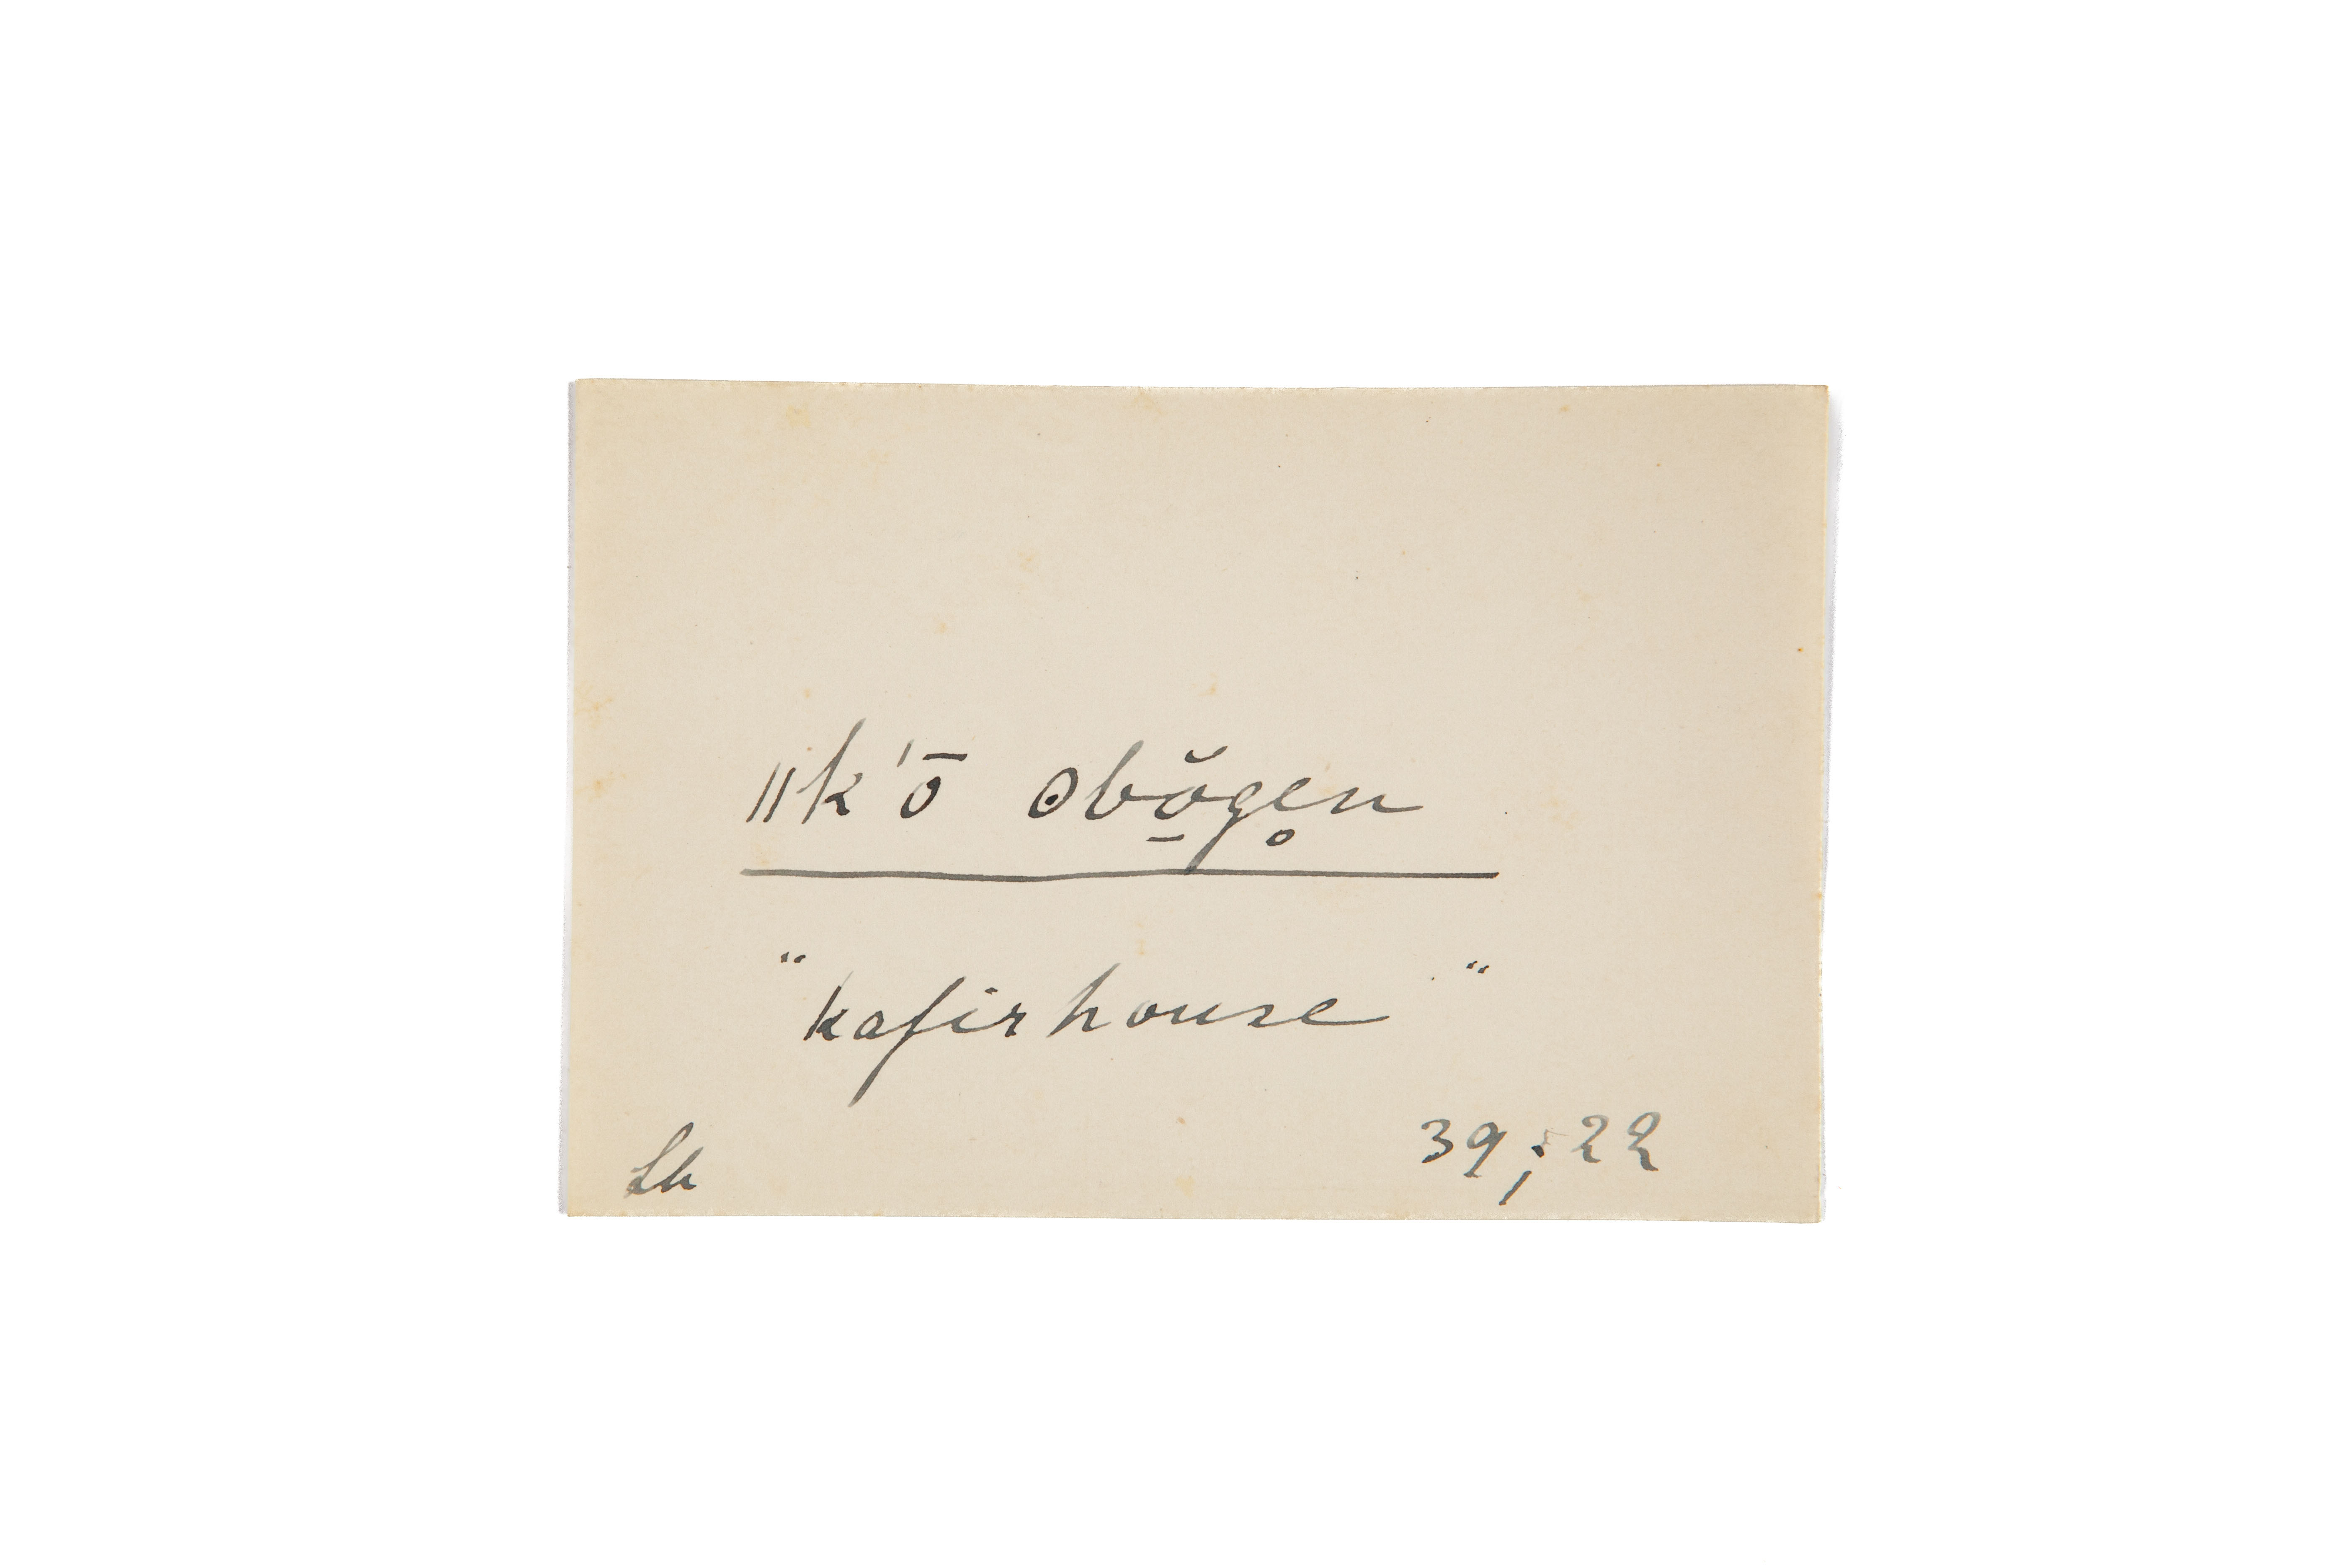 ǁk'ō ʘbŏ̱ge̥n
"kafirhouse"
Lh 39;22